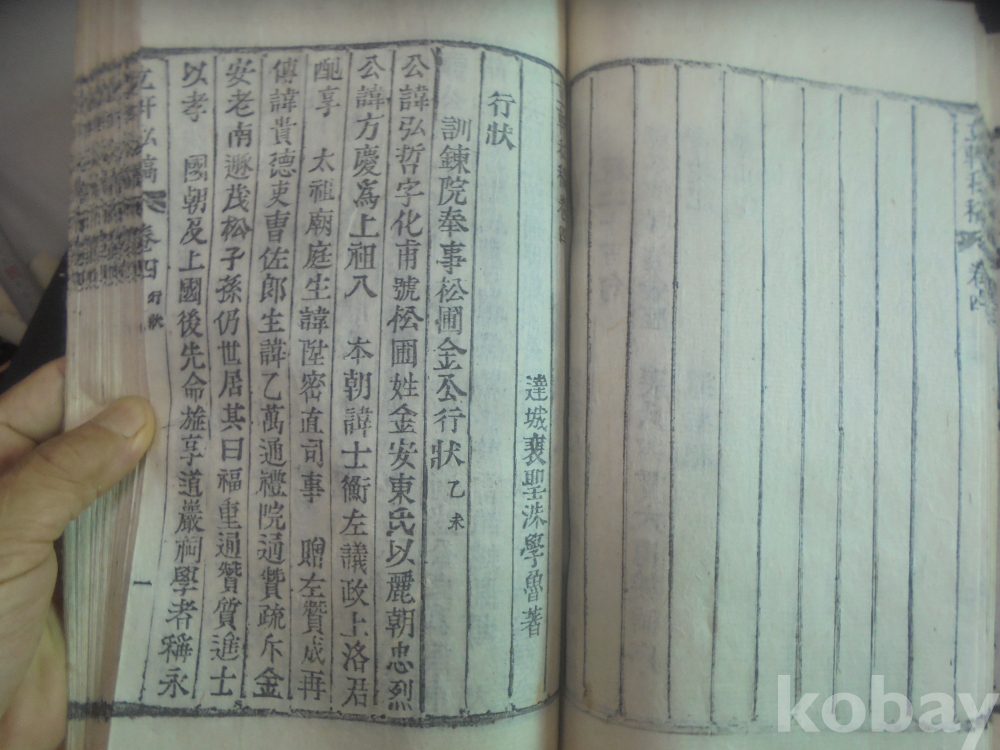 卷四
達城裵聖洙學魯著
行狀
訓鍊院奉事松圃金公行狀 乙未
公諱弘哲字化甫號松圃姓金安東氏以麗朝忠烈
公諱方慶爲上祖入 本朝諱士衡左議政上洛君
配享 太祖廟庭生諱陞密直司事 贈左贊成再
傳諱貴德吏曹佐郎生諱乙萬通禮院通贊疏斥金
安老南遯茂松子孫仍世居其曰福重通贊質進士
以孝 國朝及上國後先命旌享道巖祠學者稱永
立軒私稿 卷四 行狀 一
kobay